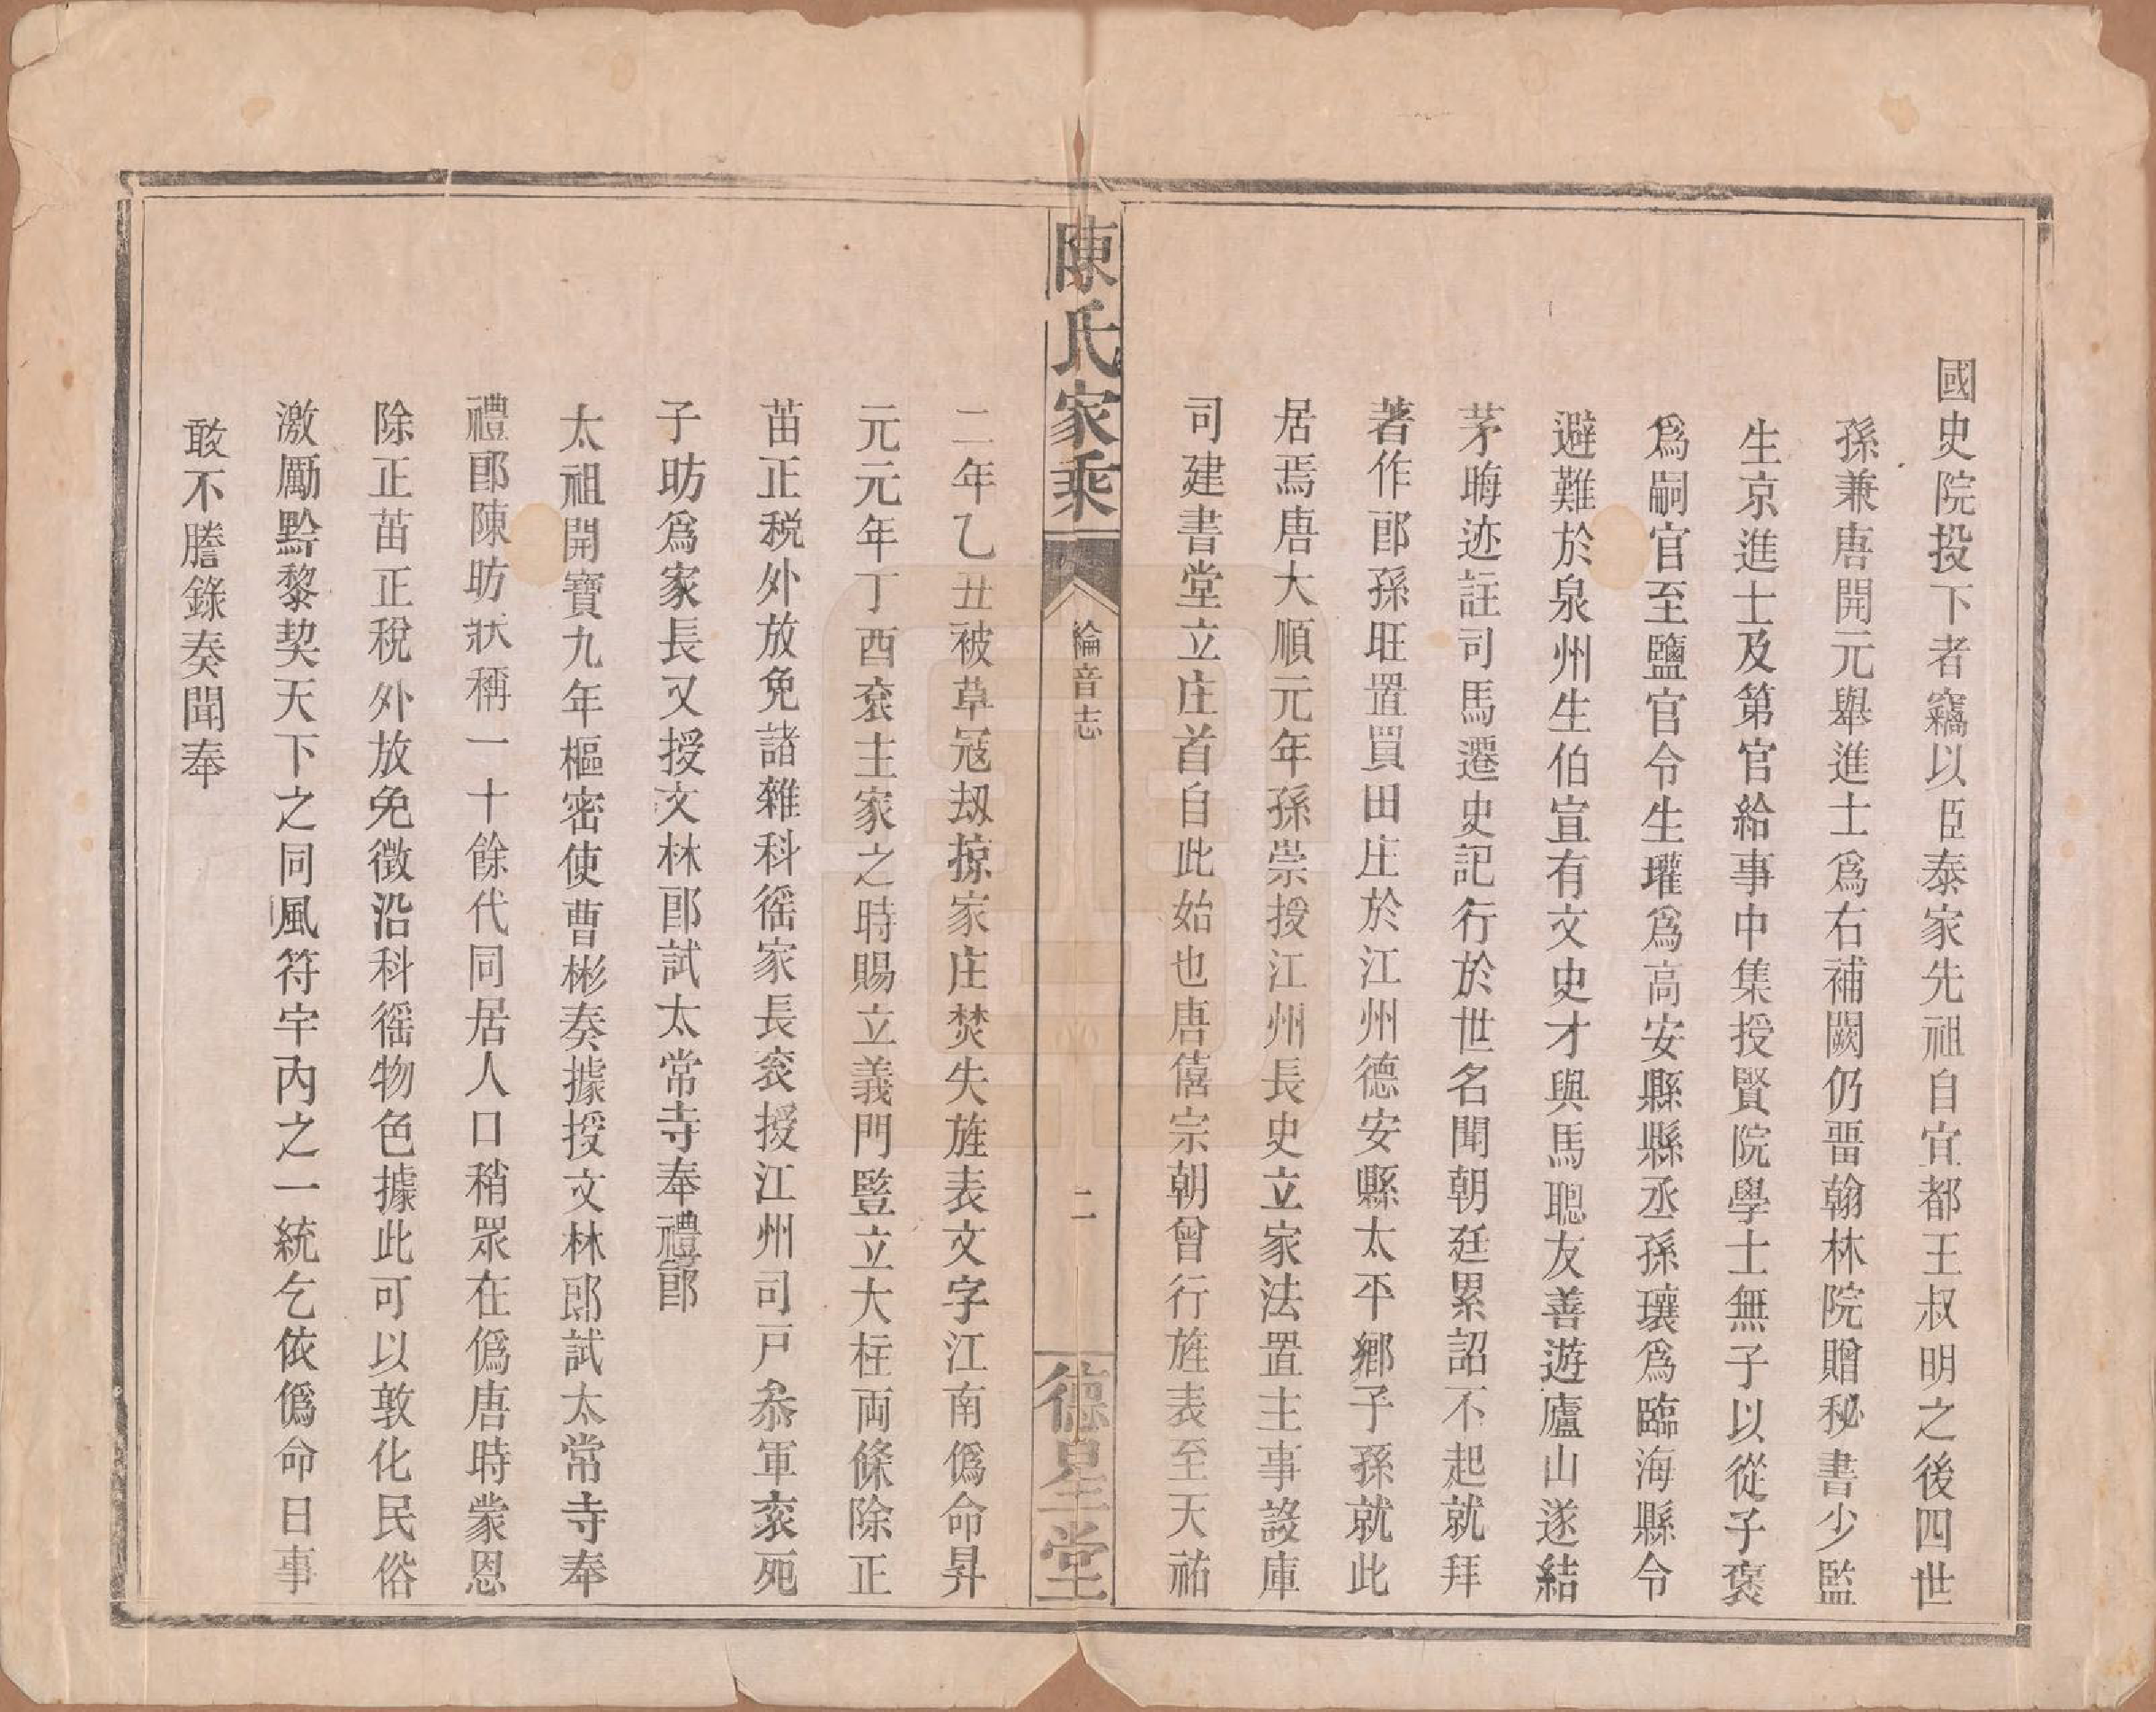 國史院投下者竊以臣泰家先祖自宜都王叔明之後四世
孫兼唐開元舉進士爲右補闕仍畱翰林院贈秘書少監
生京進士及第官給事中集授賢院學士無子以從子褒
爲嗣官至鹽官令生瓘爲高安縣縣丞孫瓌爲臨海縣令
避難於泉州生伯宣有文史才與馬聰友善遊廬山遂結
茅晦迹註司馬遷史記行於世名聞朝廷累詔不起就拜
著作郎孫旺置買田庄於江州德安縣太平鄉子孫就此
居焉唐大順元年孫崇授江州長史立家法置主事設庫
司建書堂立庄首自此始也唐僖宗朝曾行旌表至天祐
陳氏家乘
綸音志
二
德星堂
二年乙丑被草冦刼掠家庄焚失旌表文字江南僞命昇
元元年丁酉衮主家之時賜立義門竪立大柱両條除正
苗正税外放免諸雜科徭家長衮授江州司戸叅軍衮死
子昉爲家長又授文林郎試太常寺奉禮郎
太祖開寶九年樞密使曹彬奏據授文林郎試太常寺奉
禮郎陳昉狀稱一十餘代同居人口稍眾在僞唐時蒙恩
除正苗正税外放免徵沿科徭物色據此可以敦化民俗
激厲黔黎契天下之同風符宇內之一統乞依僞命日事
敢不謄錄奏聞奉